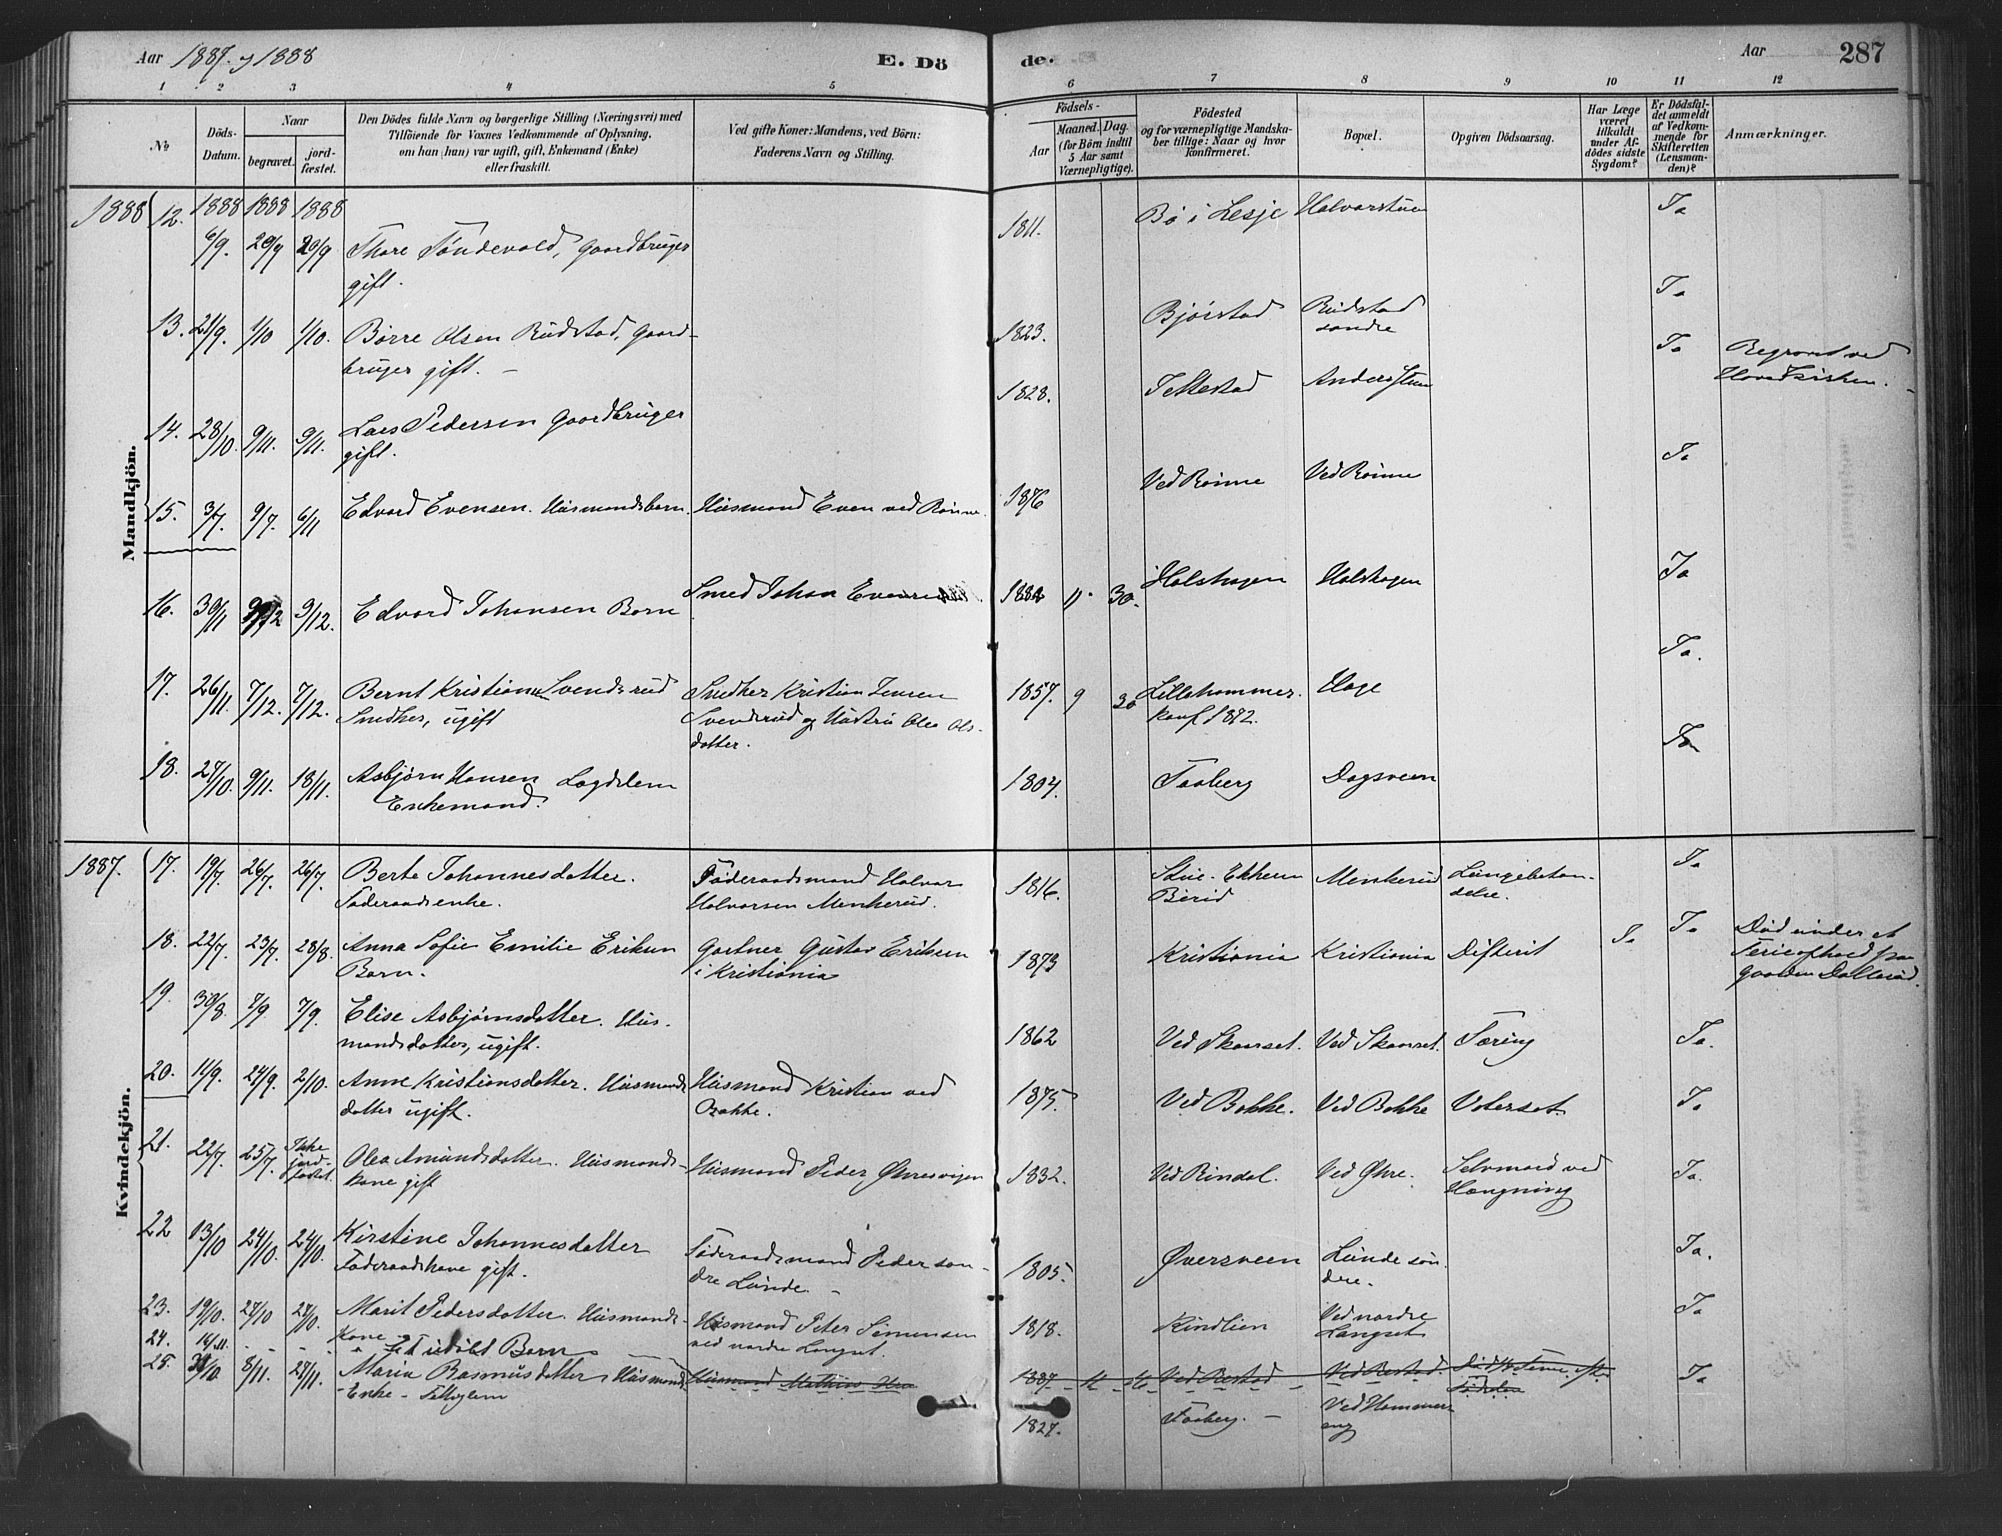 Aar 1887. og 1888
E. Dö
de.
Aar
287
1 2 3 4 5 6 7 8 9 10 11 12
No
Döds-Datum.
Naar
begravet.
jord-fæstet.
Den Dödes fulde Navn og borgerlige Stilling (Næringsvei) med
Tilföiende for Voxnes Vedkommende af Oplysning,
om han (hun) var ugift, gift, Enkemand (Enke)
eller fraskilt.
Ved gifte Koner: Mandens, ved Börn:
Faderens Navn og Stilling.
Födsels-
Aar
Maaned. Dag.
(for Börn indtil
5 Aar samt
Værnepligtige).
Födested
og for værnepligtige Mandska-
ber tillige: Naar og hvor
Konfirmeret.
Bopæl.
Opgiven Dödsaarsag.
Har Læge
været
tilkaldt
under Af-
dödes sidste
Sygdom?
Er Dödsfal-
det anmeldt
af Vedkom-
mende for
Skifteretten
(Lensman-
den)?
Anmærkninger.
Mandkjön.
1888 12. 1888 1888 1888
6/9. 20/9 20/9 Thore Tøndevold, Gaardbruger
gift.
1811. Bø i Lesje Halvarstuen Ja
13. 21/9. 1/10 1/10. Børre Olsen Rudstad, Gaard-
bruger gift. –
1823. Bjørstad Rudstad
søndre Ja
14. 28/10. 9/11. 9/11. Lars Pedersen Gaardbruger
gift.
1828. Tellestad Andersstuen Ja Begravet ved
Hovedkirken.
15. 3/7. 9/7. 6/11 Edvard Evensen. Husmandsbarn. Husmand Even ved Rønne. 1876 Ved Rønne Ved Rønne Ja
16. 30/11 9/12 9/12. Edvard Johansen Barn Smed Johan Evensen 1888 11 30. Holshagen Holshagen Ja
17. 26/11. 7/12. 7/12. Bernt Kristian Svendsrud
Snedker, ugift
Snedker Kristian Jensen
Svendsrud og Hustru Olea Ols-
datter.
1857. 9 30 Lillehammer.
konf. 1872. Hage Ja.
18. 27/10. 9/11. 18/11. Asbjørn Hansen Lægdslem
Enkemand.
1804. Faaberg Dagsveen Ja
Kvindekjön.
1887. 17. 19/7. 26/7. 26/7. Berte Johannesdatter.
Føderaadsenke.
Føderaadsmand Halvar
Halvorsen Menkerud.
1816. Stue. Ekkern
Birid Menkerud Lungebetæn-
delse. Ja
18. 22/7. 23/7. 28/8. Anna Sofie Emilie Eriksen
Barn.
Gartner Gustav Eriksen
i Kristiania
1873 Kristiania Kristiania Difterit Ja Ja Död under et
Ferieophold paa
gaarden Dallerud.
19. 30/8. 7/9 7/9. Elise Asbjørnsdatter. Hus-
mandsdatter, ugift.
1862 Ved Skaarset. Ved Skaarset. Tæring Ja.
20. 11/9. 24/9. 2/10. Anne Kristiansdatter. Husmands
datter ugift.
Husmand Kristian ved
Bakke.
1875. Ved Bakke. Ved Bakke Vatersot. Ja
21. 22/7. 25/7. Ikke
jord-
fæstet. Olea Amundsdatter. Husmands-
kone gift
Husmand Peder Øvresvejen
1832. Ved Rindal. Ved Øvre. Selvmord ved
Hængning Ja.
22 13/10 24/10. 24/10. Kirstine Johannesdatter
Føderaadskone gift.
Føderaadsmand Peder søn-
dre Lunde. –
1805. Øversveen Lunde søn-
dre. Ja.
23. 19/10. 27/10 27/10. Marit Pedersdatter. Husmands-
Kone –
Husmand Peter Simensen
ved nordre Langset.
1818. Kindlien Ved nordre
Langset Ja
24. 14/11. - - - Et udöbt Barn
Husmand Mathias
1887 11 14 Ved Restad Ved Restad.
25. 31/10. 8/11. 27/11. Maria Rasmusdatter Husmands
Enke –
1827. Faaberg. – Ved Hammers-
eng Ja